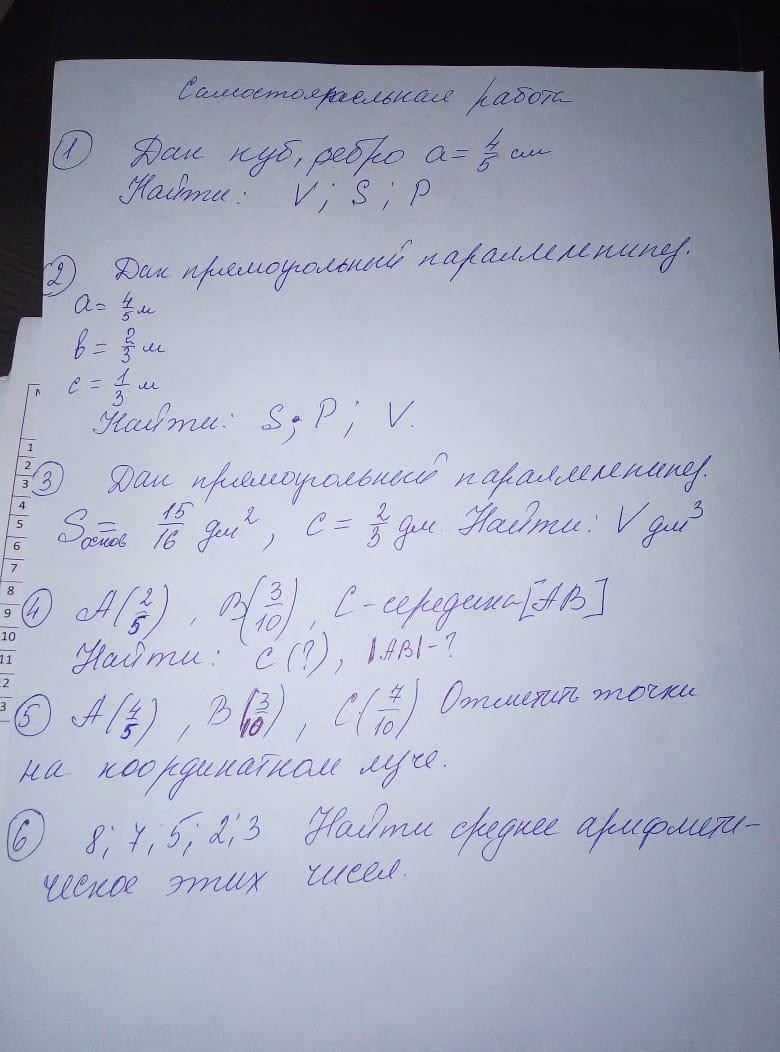 Самостоятельная работа
1 Дан куб, ребро a = 4/5 см
Найти: V; S; P
2 Дан прямоугольный параллелепипед.
a = 4/5 м
в = 2/3 м
c = 1/3 м
Найти: S; P; V.
3 Дан прямоугольный параллелепипед.
Sоснов = 15/16 дм², c = 2/3 дм. Найти: V дм³
4 A(2/5), B(3/10), C - середина [AB]
Найти: C(?), |AB| - ?
5 A(4/5), B(3/10), C(7/10) Отметить точки
на координатном луче.
6 8; 7; 5; 2; 3 Найти среднее арифмети-
ческое этих чисел.
1
2
3
4
5
6
7
8
9
10
11
2
3